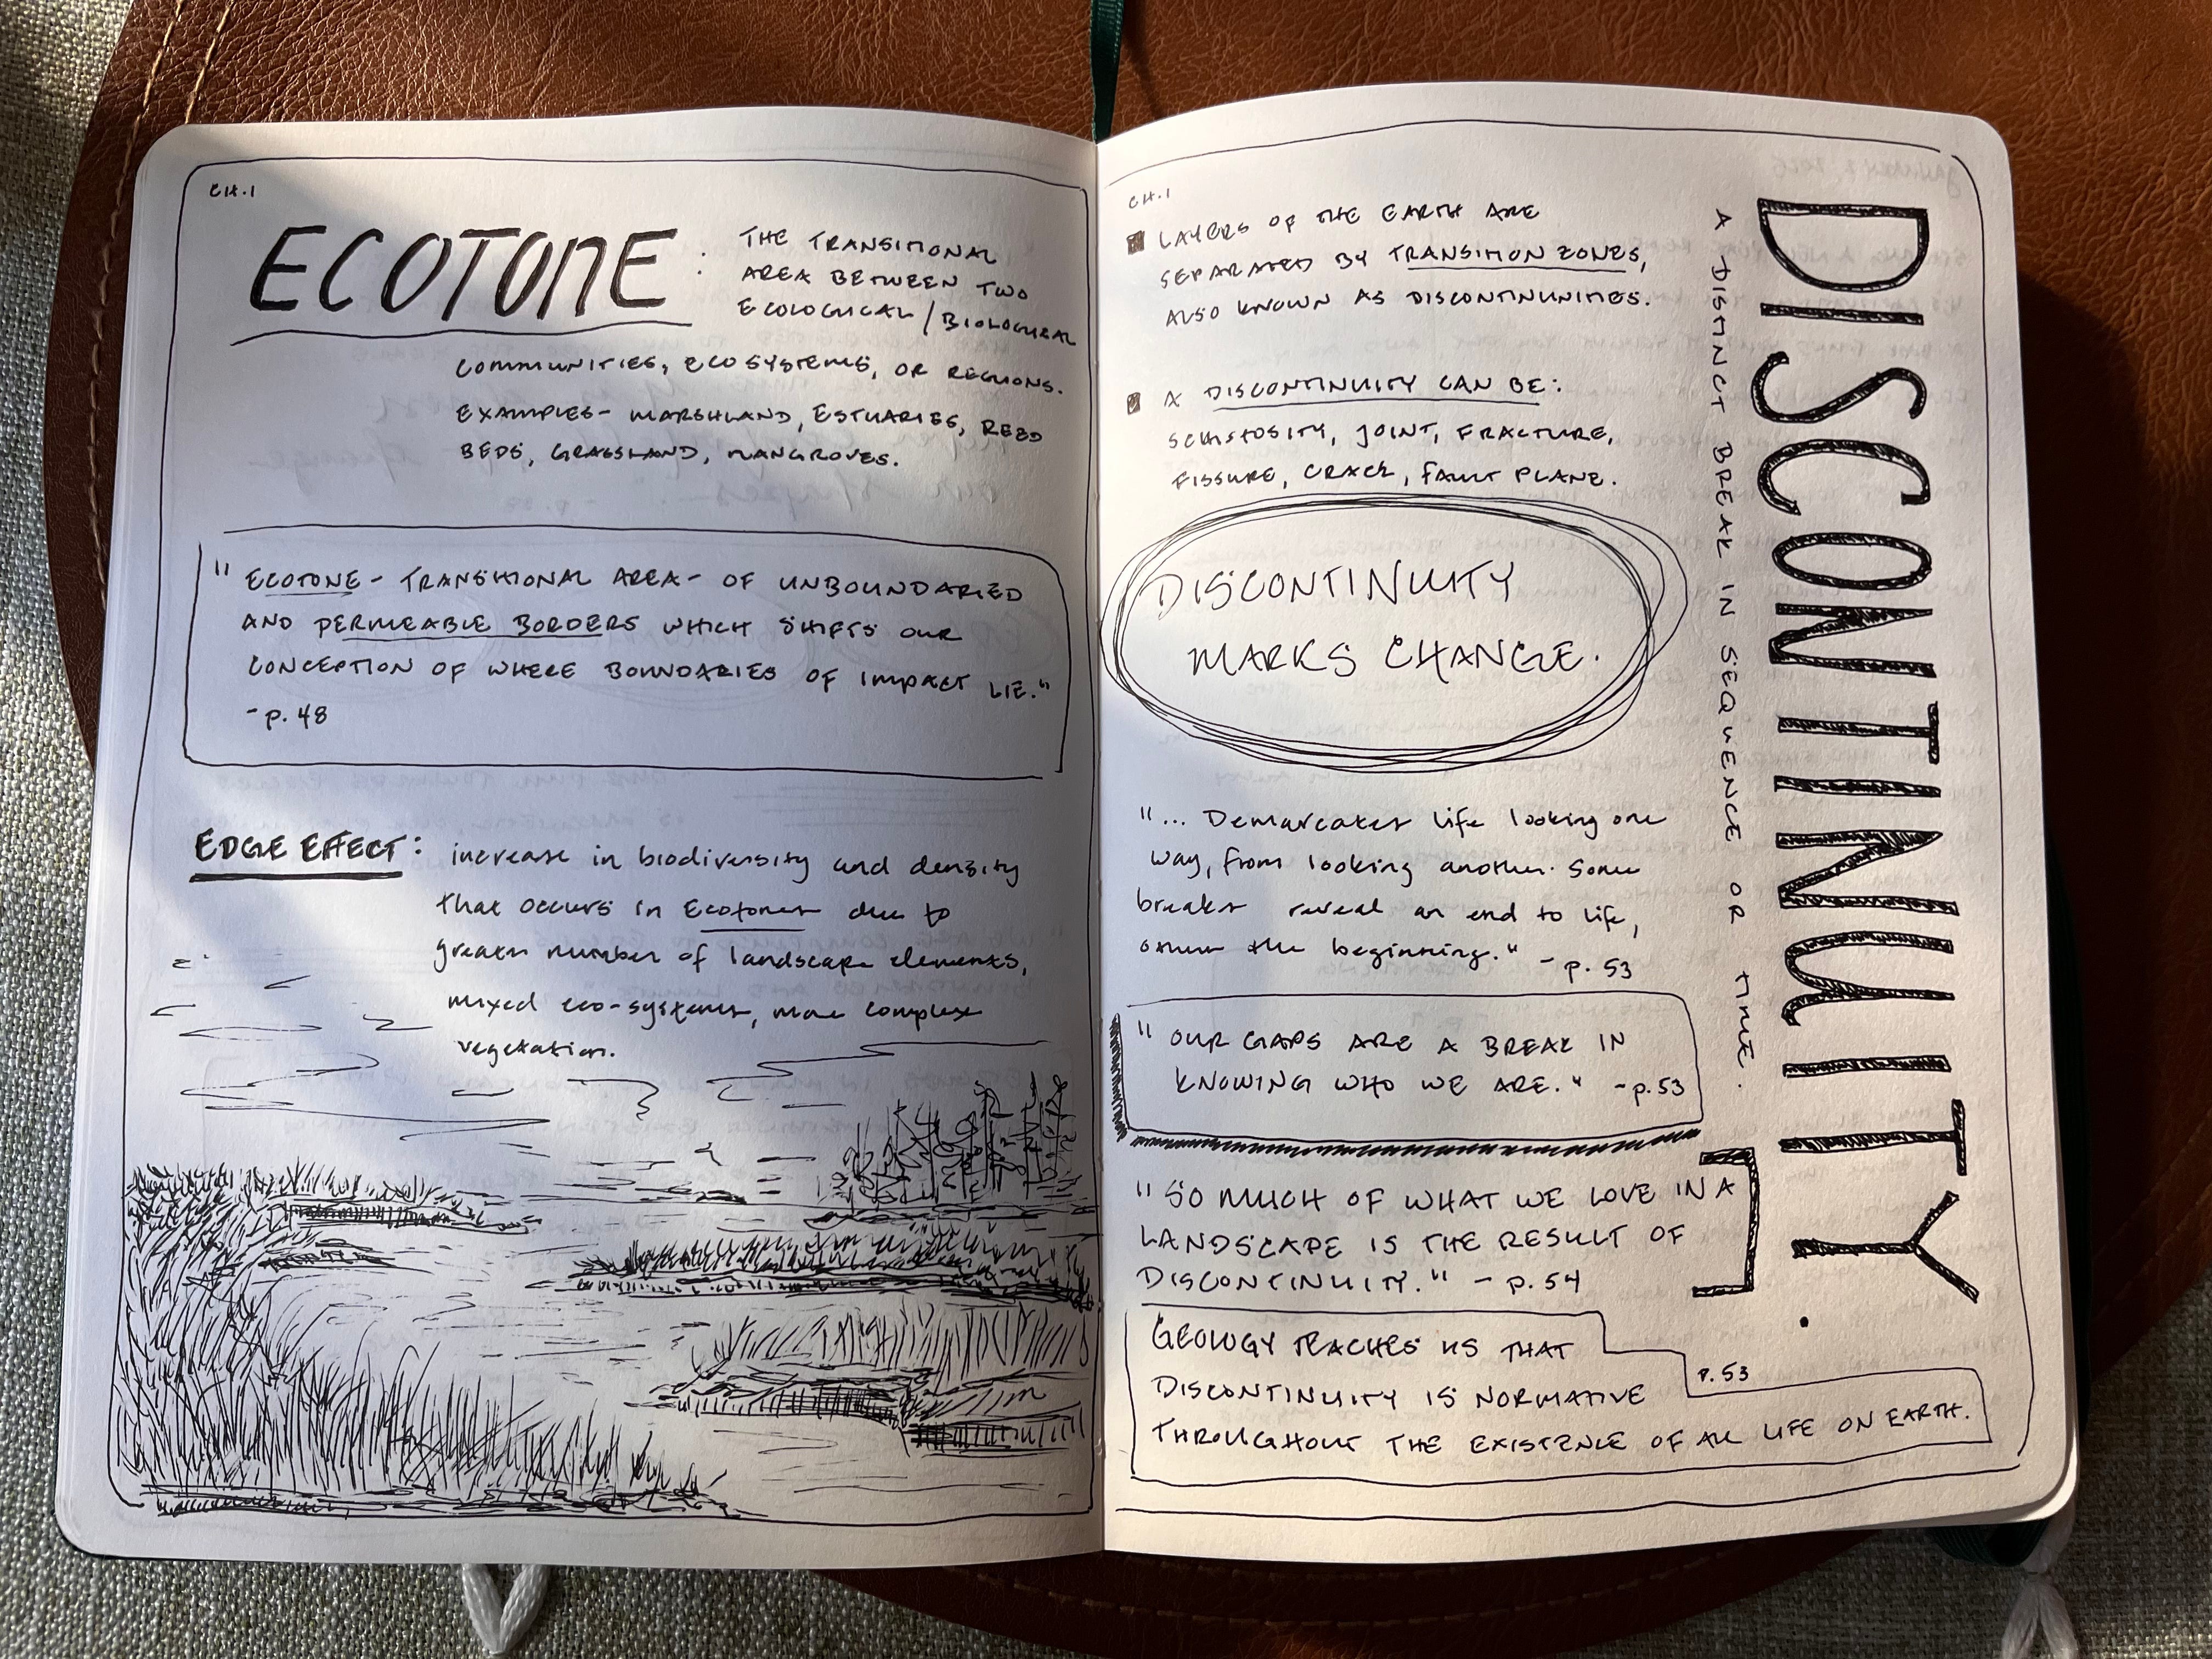 CH.1
ECOTONE: THE TRANSITIONAL
AREA BETWEEN TWO
ECOLOGICAL / BIOLOGICAL
COMMUNITIES, ECOSYSTEMS, OR REGIONS.
EXAMPLES- MARSHLAND, ESTUARIES, REED
BEDS, GRASSLAND, MANGROVES.
"ECOTONE - TRANSITIONAL AREA - OF UNBOUNDARIED
AND PERMEABLE BORDERS WHICH SHIFTS OUR
CONCEPTION OF WHERE BOUNDARIES OF IMPACT LIE."
- p. 48
EDGE EFFECT: increase in biodiversity and density
that occurs in Ecotones due to
greater number of landscape elements,
mixed eco-systems, more complex
vegetation.
CH.1
LAYERS OF THE EARTH ARE
SEPARATED BY TRANSITION ZONES,
ALSO KNOWN AS DISCONTINUNITIES.
A DISCONTINUITY CAN BE:
SCHISTOSITY, JOINT, FRACTURE,
FISSURE, CRACK, FAULT PLANE.
DISCONTINUITY
MARKS CHANGE.
"... Demarcates life looking one
way, from looking another. Some
breaks reveal an end to life,
others the beginning." - p. 53
"OUR GAPS ARE A BREAK IN
KNOWING WHO WE ARE." - p. 53
"SO MUCH OF WHAT WE LOVE IN A
LANDSCAPE IS THE RESULT OF
DISCONTINUITY." - p. 54
GEOLOGY TEACHES US THAT
DISCONTINUITY IS NORMATIVE
THROUGHOUT THE EXISTENCE OF ALL LIFE ON EARTH.
P. 53
DISCONTINUITY.
A DISTINCT BREAK IN SEQUENCE OR TIME.